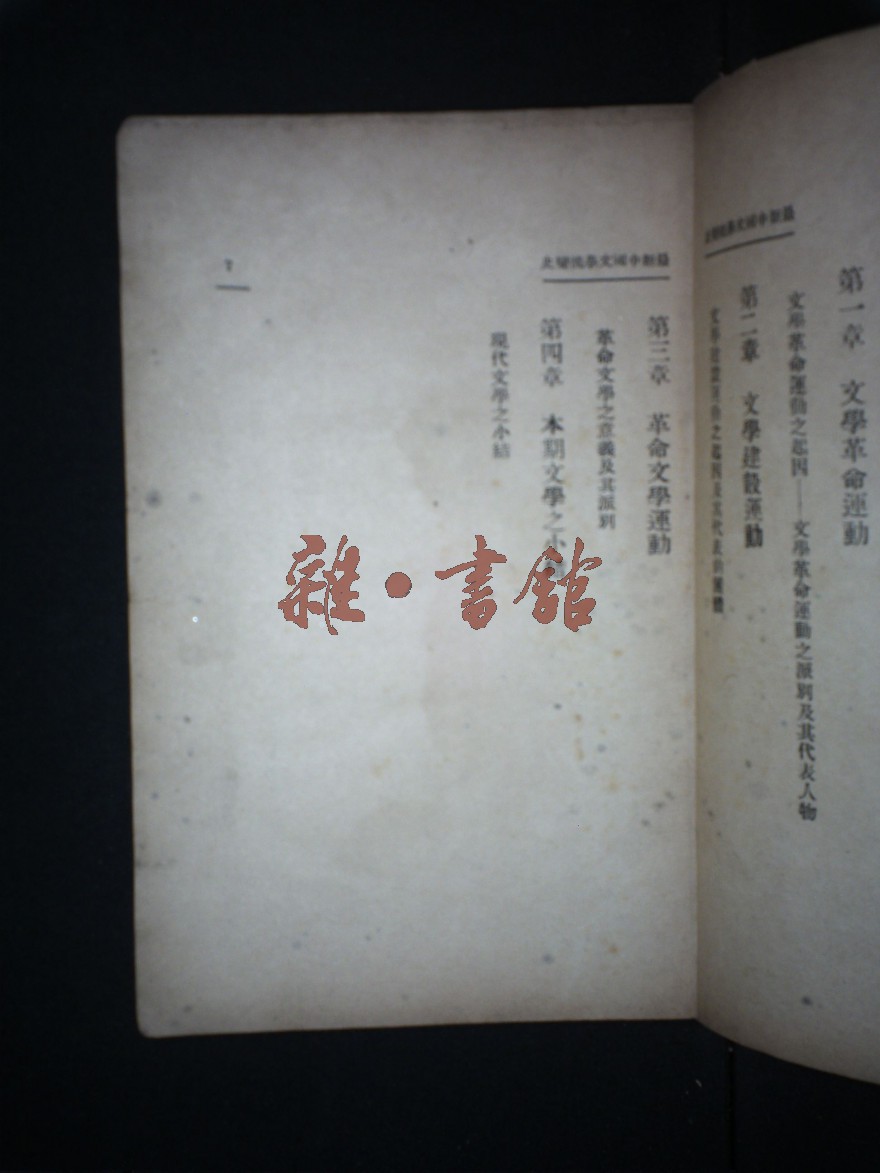 最新中國文學流變史
第一章　文學革命運動
文學革命運動之起因——文學革命運動之派別及其代表人物
第二章　文學建設運動
文學建設運動之起因及其代表的團體
最新中國文學流變史
第三章　革命文學運動
革命文學之意義及其派別
第四章　本期文學之小
現代文學之小結
7
雜·書館